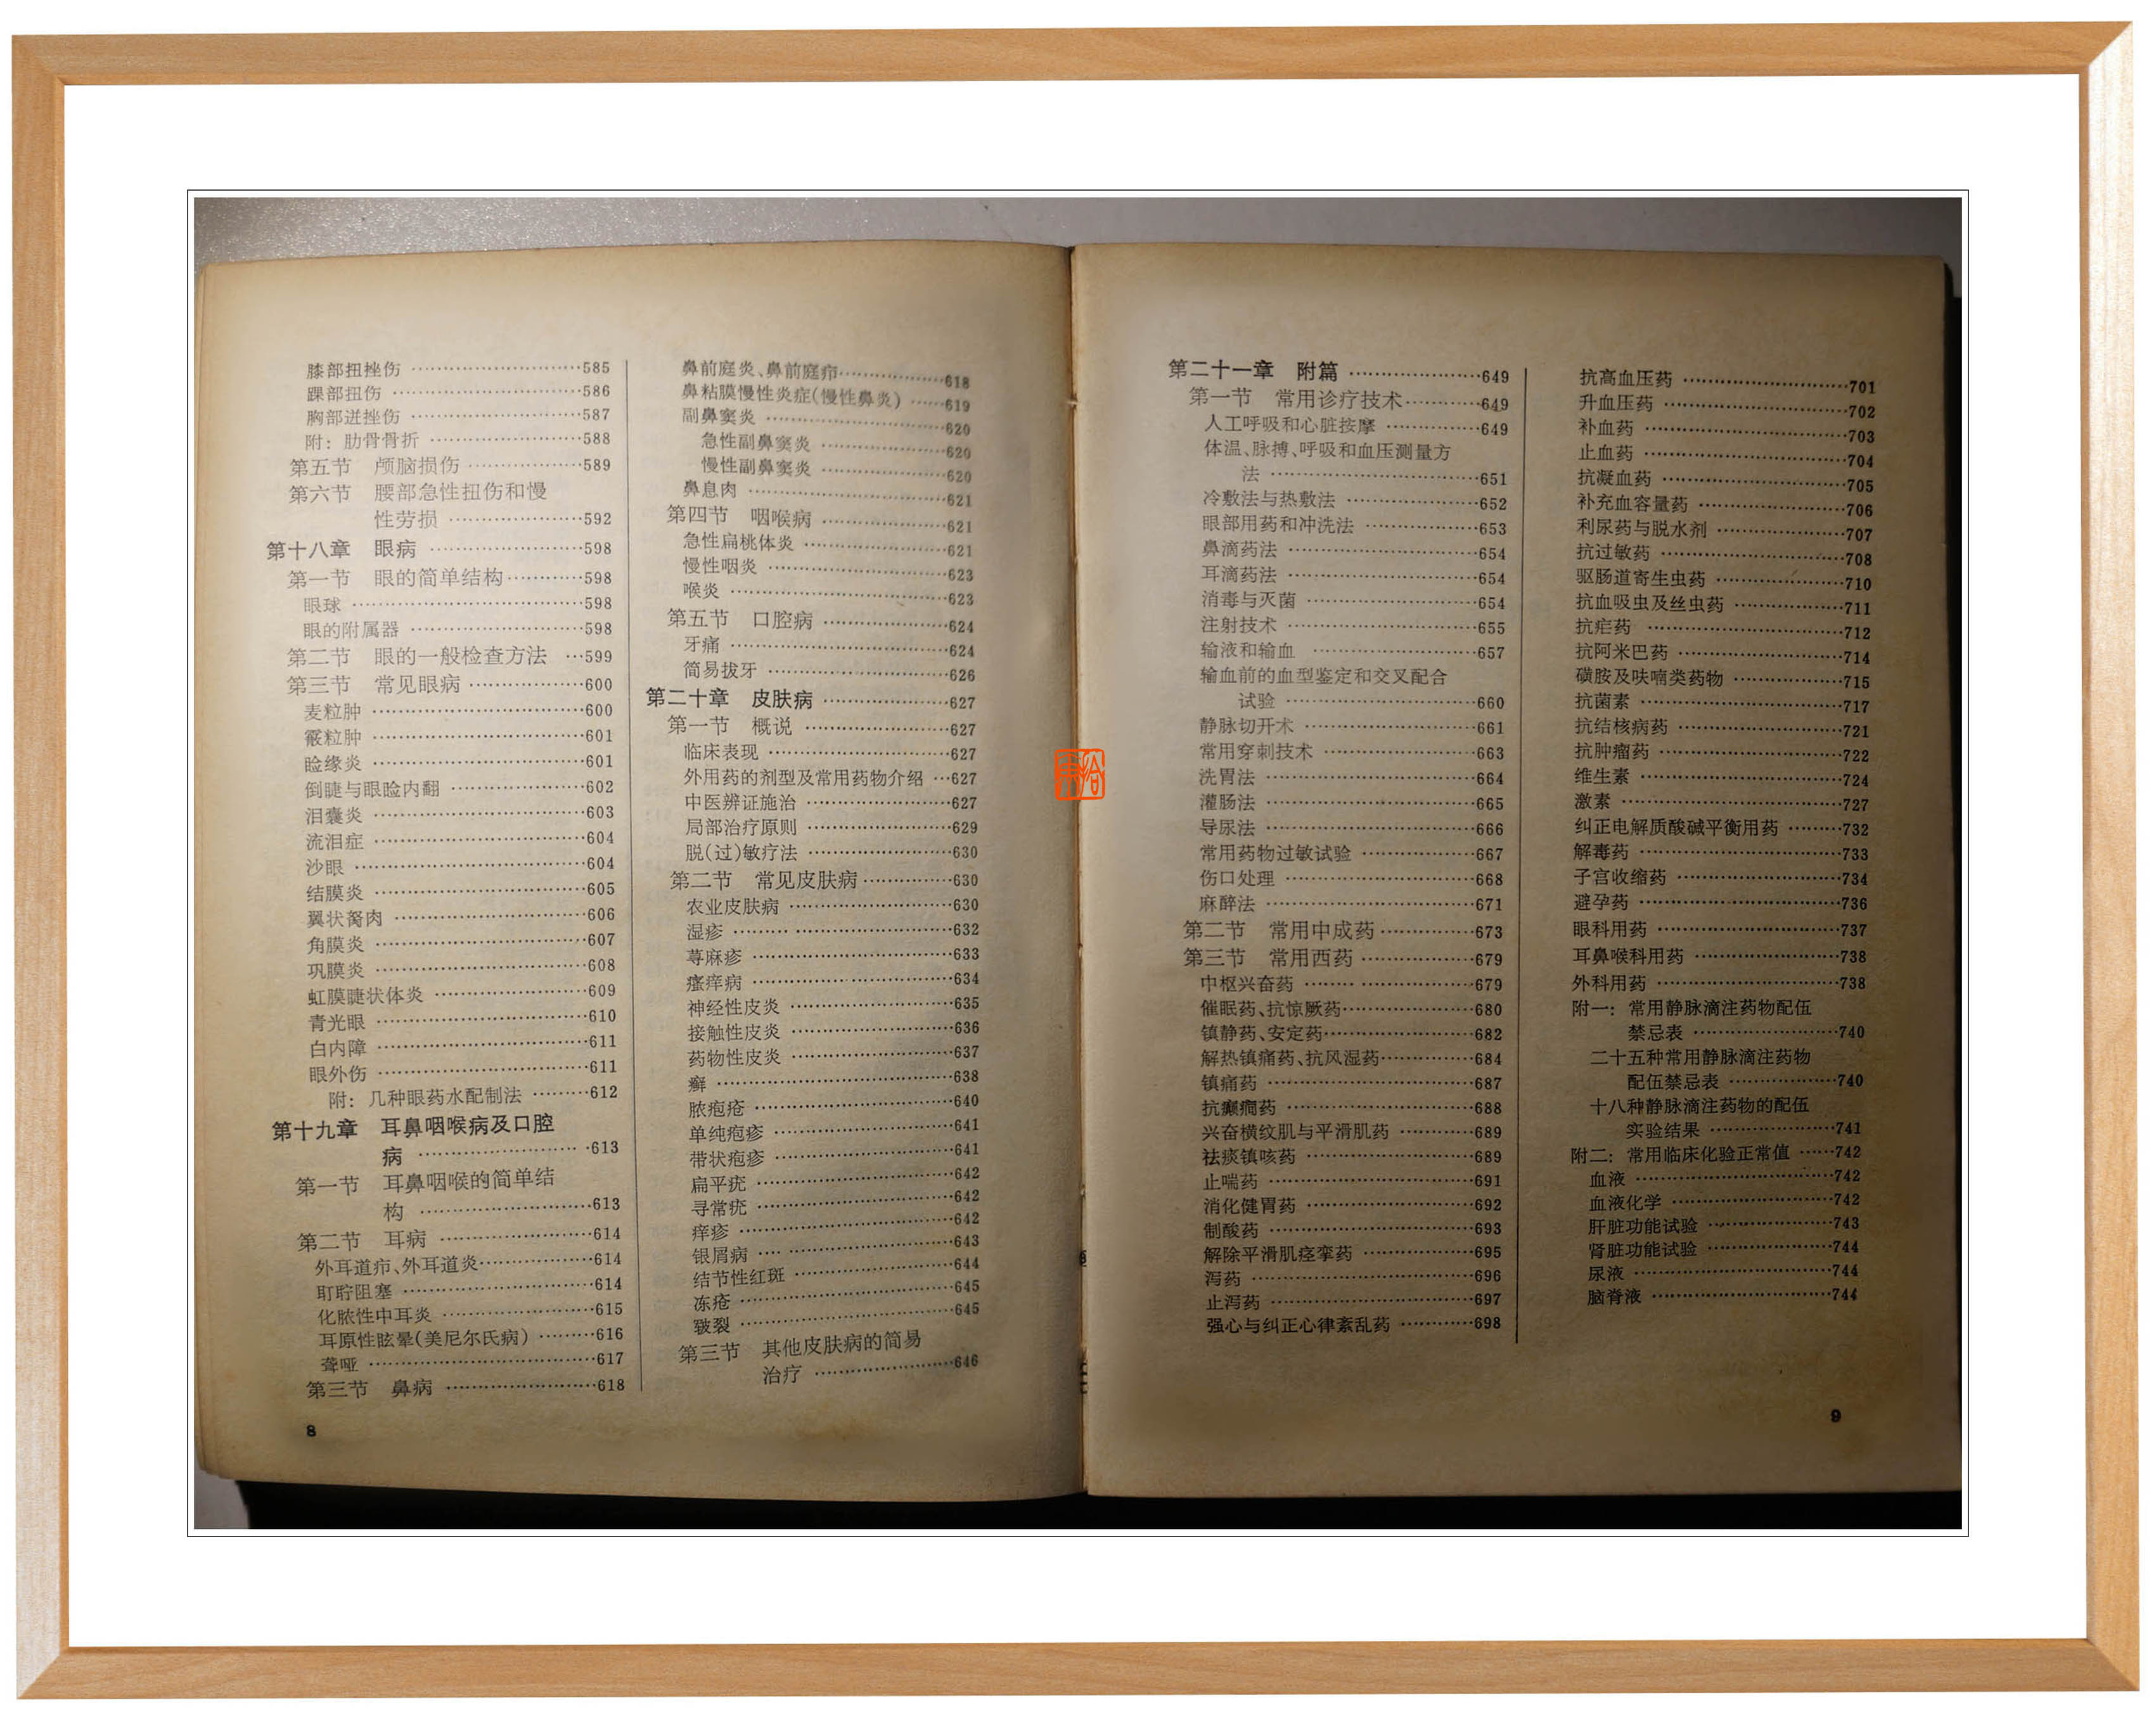 膝部扭挫伤 ………………585
踝部扭伤 ………………586
胸部迸挫伤 ………………587
附：肋骨骨折 ………………588
第五节 颅脑损伤 ………………589
第六节 腰部急性扭伤和慢
性劳损 ………………592
第十八章 眼病 ………………598
第一节 眼的简单结构 ………………598
眼球 ………………598
眼的附属器 ………………598
第二节 眼的一般检查方法 …599
第三节 常见眼病 ………………600
麦粒肿 ………………600
霰粒肿 ………………601
睑缘炎 ………………601
倒睫与眼睑内翻 ………………602
泪囊炎 ………………603
流泪症 ………………604
沙眼 ………………604
结膜炎 ………………605
翼状胬肉 ………………606
角膜炎 ………………607
巩膜炎 ………………608
虹膜睫状体炎 ………………609
青光眼 ………………610
白内障 ………………611
眼外伤 ………………611
附：几种眼药水配制法 ………612
第十九章 耳鼻咽喉病及口腔
病 ………………613
第一节 耳鼻咽喉的简单结
构 ………………613
第二节 耳病 ………………614
外耳道疖、外耳道炎 ………………614
耵聍阻塞 ………………614
化脓性中耳炎 ………………615
耳原性眩晕(美尼尔氏病) ………616
聋哑 ………………617
第三节 鼻病 ………………618
8
鼻前庭炎、鼻前庭疖 ………………618
鼻粘膜慢性炎症(慢性鼻炎) ……619
副鼻窦炎 ………………620
急性副鼻窦炎 ………………620
慢性副鼻窦炎 ………………620
鼻息肉 ………………621
第四节 咽喉病 ………………621
急性扁桃体炎 ………………621
慢性咽炎 ………………623
喉炎 ………………623
第五节 口腔病 ………………624
牙痛 ………………624
简易拔牙 ………………626
第二十章 皮肤病 ………………627
第一节 概说 ………………627
临床表现 ………………627
外用药的剂型及常用药物介绍 …627
中医辨证施治 ………………627
局部治疗原则 ………………629
脱(过)敏疗法 ………………630
第二节 常见皮肤病 ………………630
农业皮肤病 ………………630
湿疹 ………………632
荨麻疹 ………………633
瘙痒病 ………………634
神经性皮炎 ………………635
接触性皮炎 ………………636
药物性皮炎 ………………637
癣 ………………638
脓疱疮 ………………640
单纯疱疹 ………………641
带状疱疹 ………………641
扁平疣 ………………642
寻常疣 ………………642
痒疹 ………………642
银屑病 ………………643
结节性红斑 ………………644
冻疮 ………………645
皲裂 ………………645
第三节 其他皮肤病的简易
治疗 ………………646
第二十一章 附篇 ………………649
第一节 常用诊疗技术 …………649
人工呼吸和心脏按摩 ……………649
体温、脉搏、呼吸和血压测量方
法 ………………651
冷敷法与热敷法 ………………652
眼部用药和冲洗法 ………………653
鼻滴药法 ………………654
耳滴药法 ………………654
消毒与灭菌 ………………654
注射技术 ………………655
输液和输血 ………………657
输血前的血型鉴定和交叉配合
试验 ………………660
静脉切开术 ………………661
常用穿刺技术 ………………663
洗胃法 ………………664
灌肠法 ………………665
导尿法 ………………666
常用药物过敏试验 ………………667
伤口处理 ………………668
麻醉法 ………………671
第二节 常用中成药 ………………673
第三节 常用西药 ………………679
中枢兴奋药 ………………679
催眠药、抗惊厥药 ………………680
镇静药、安定药 ………………682
解热镇痛药、抗风湿药 ………………684
镇痛药 ………………687
抗癫痫药 ………………688
兴奋横纹肌与平滑肌药 …………689
祛痰镇咳药 ………………689
止喘药 ………………691
消化健胃药 ………………692
制酸药 ………………693
解除平滑肌痉挛药 ………………695
泻药 ………………696
止泻药 ………………697
强心与纠正心律紊乱药 …………698
抗高血压药 ………………701
升血压药 ………………702
补血药 ………………703
止血药 ………………704
抗凝血药 ………………705
补充血容量药 ………………706
利尿药与脱水剂 ………………707
抗过敏药 ………………708
驱肠道寄生虫药 ………………710
抗血吸虫及丝虫药 ………………711
抗疟药 ………………712
抗阿米巴药 ………………714
磺胺及呋喃类药物 ………………715
抗菌素 ………………717
抗结核病药 ………………721
抗肿瘤药 ………………722
维生素 ………………724
激素 ………………727
纠正电解质酸碱平衡用药 ………732
解毒药 ………………733
子宫收缩药 ………………734
避孕药 ………………736
眼科用药 ………………737
耳鼻喉科用药 ………………738
外科用药 ………………738
附一：常用静脉滴注药物配伍
禁忌表 ………………740
二十五种常用静脉滴注药物
配伍禁忌表 ………………740
十八种静脉滴注药物的配伍
实验结果 ………………741
附二：常用临床化验正常值 ……742
血液 ………………742
血液化学 ………………742
肝脏功能试验 ………………743
肾脏功能试验 ………………744
尿液 ………………744
脑脊液 ………………744
9